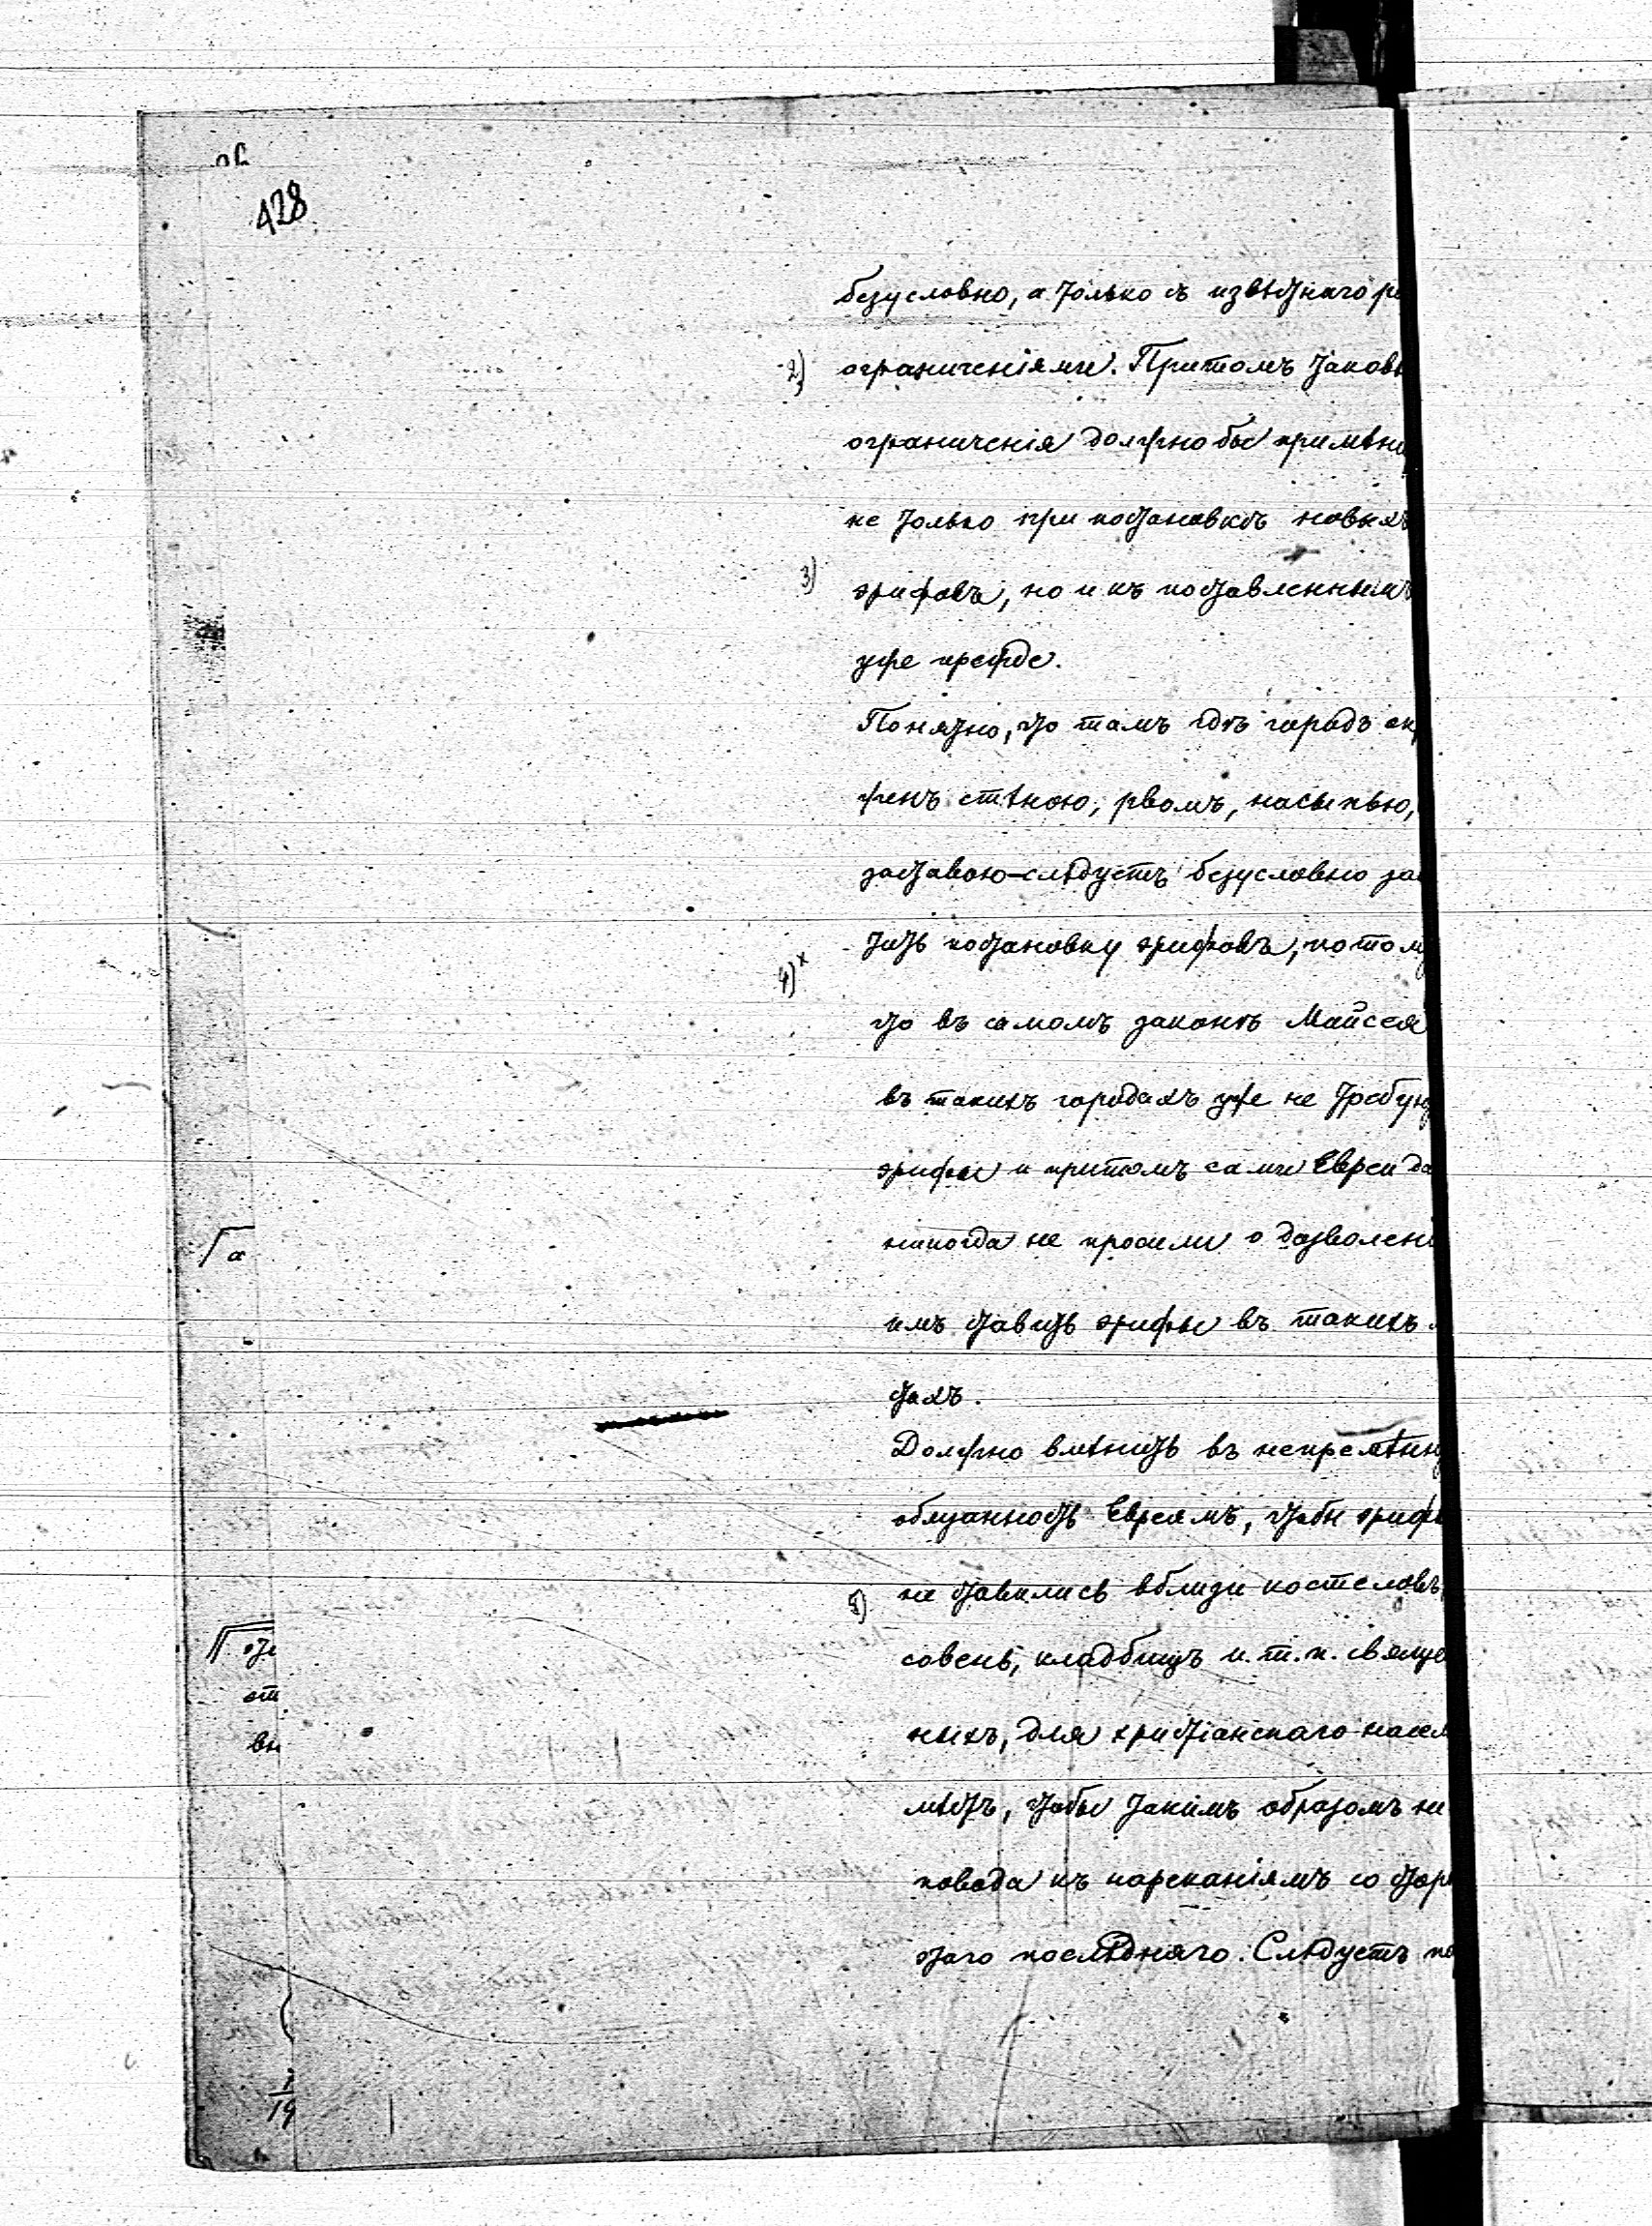 428
безусловно, а только съ извѣстнаго р
2) ограниченіями. Притомъ таковы
ограниченія должно бы примѣни
не только при постановкѣ новыхъ
3) эрифовъ, но и къ поставленнымъ
уже прежде.
Понятно, что тамъ гдѣ городъ ок
женъ стѣною, рвомъ, насыпью,
заставою-слѣдуетъ безусловно за
тить постановку эрифовъ, потому
4)х
что въ самомъ законѣ Мойсея
въ такихъ городахъ уже не требую
эрифы и притомъ сами Евреи да
никогда не просили о дозволені
а
имъ ставить эрифы въ такихъ
стахъ.
Должно вмѣнить въ непремѣнн
обязанность Евреямъ, чтобы эрифы
5) не ставились вблизи костеловъ,
совень, кладбищъ и.т.п. священ
оте
ст
ныхъ, для христіанскаго насел
вы
мѣстъ, чтобы такимъ образомъ не
повода къ нареканіямъ со стор
этаго послѣдняго. Слѣдуетъ по
19